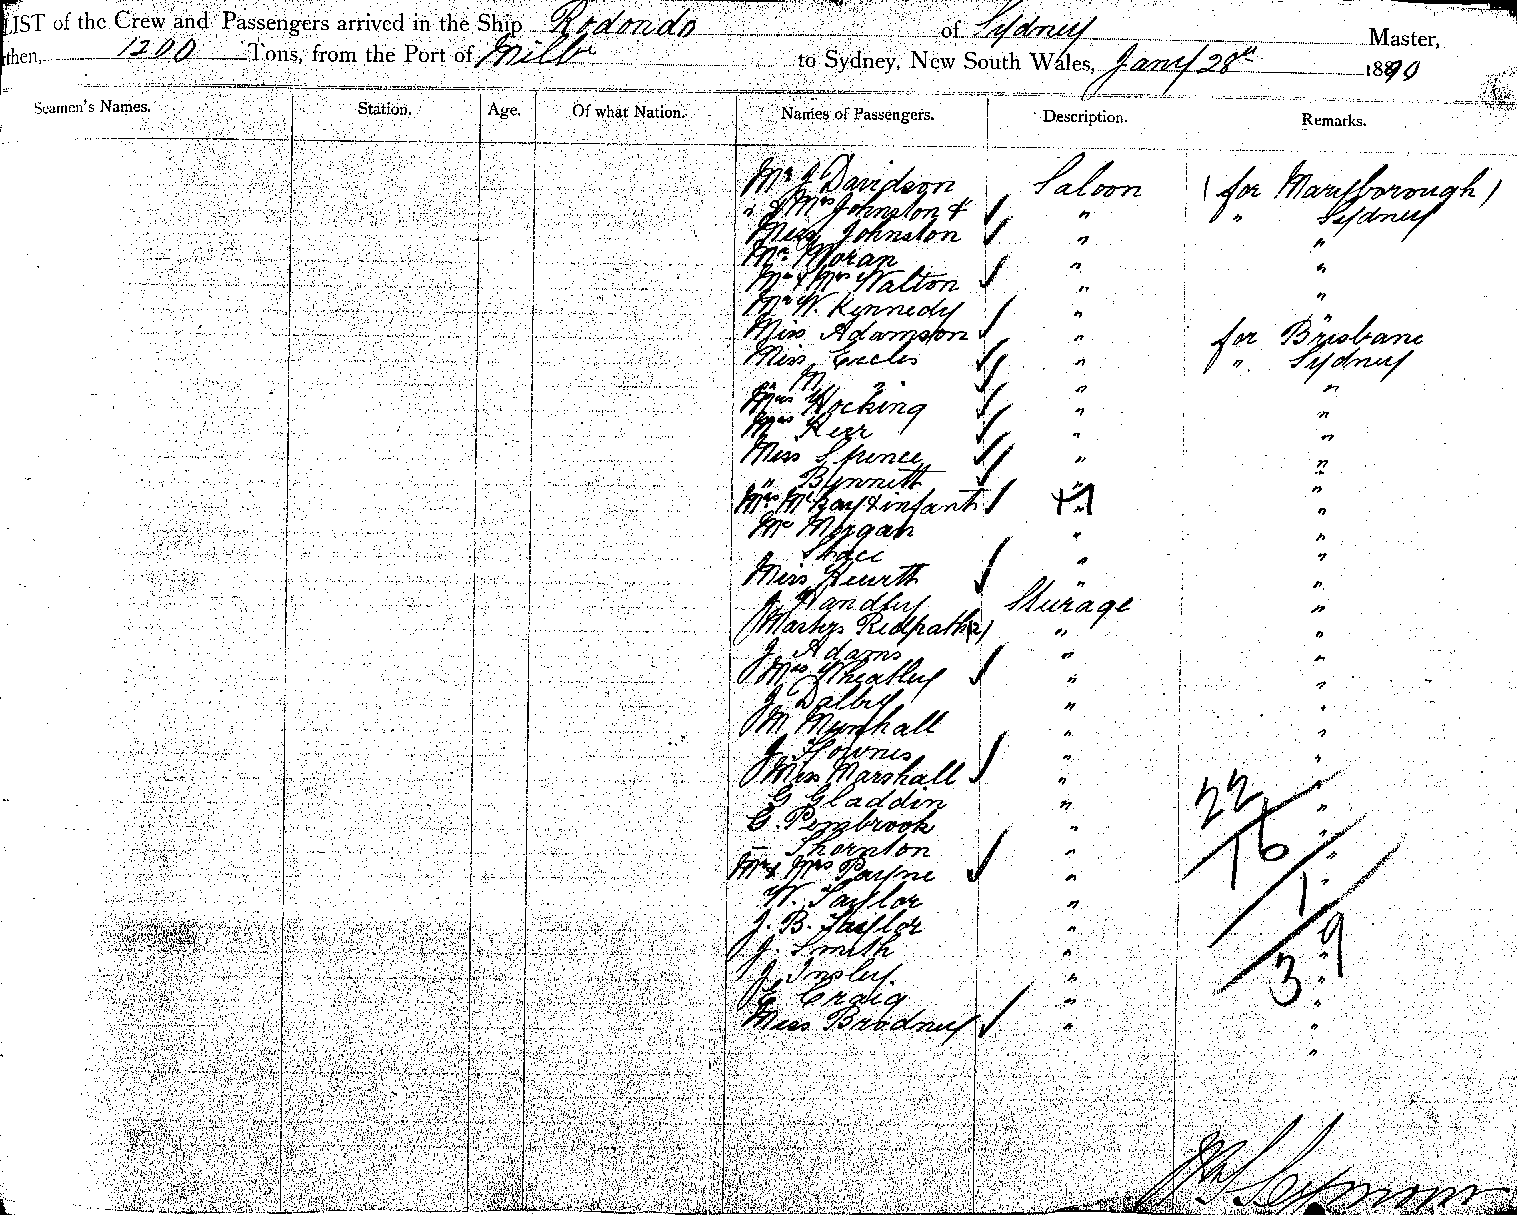 LIST of the Crew and Passengers arrived in the Ship Rodondo of Sydney Master,
then, 1200 Tons, from the Port of Melbe to Sydney, New South Wales, Jany 28th 1890
Seamen's Names. Station. Age. Of what Nation. Names of Passengers. Description. Remarks.
Mr J Davidson Saloon (for Maryborough)
" & Mrs Johnston & " " Sydney
Miss Johnston " "
Mr Moran " "
Mr & Mrs Walton " "
Mr W. Kennedy " "
Miss Adamson " for Brisbane
Miss Eccles " " Sydney
" M " "
Mrs Hocking " "
Mrs Kerr " "
Miss Spence " "
" Bennett " "
Mrs McKay & infant " "
Mr Morgan " "
Miss " "
J Handley Steurage "
Martys Redpath (2) " "
J. Adams " "
Mrs Wheatley " "
J Dalby " "
M " "
J. Townes " "
Miss Marshall " "
G Gladdin " "
G. Pembrook " "
— Thornton " "
Mr & Mrs Payne " "
W. Taylor " "
J. B. Taylor " "
J. Smith " "
J Insley " "
E Craig " "
Miss Brodney " "
22
16
1
39
Seymour